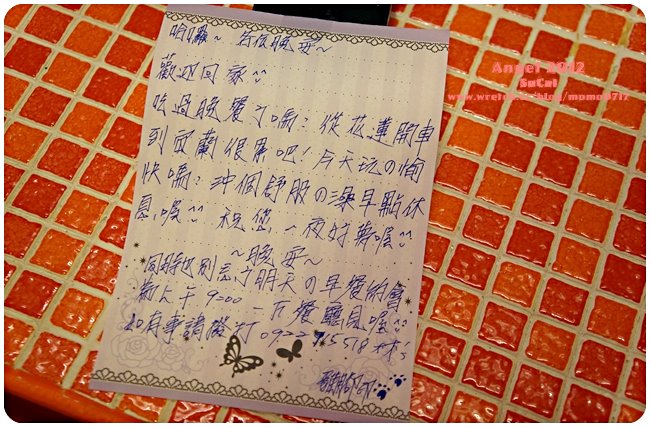 哈囉~ 各位晚安~
歡迎回家^^
吃過晚餐了嗎?從花蓮開車
到宜蘭很累吧!今天玩の愉
快嗎?沖個舒服の澡早點休
息喔^^ 祝您一夜好夢喔^^
~晚安~
同時也別忘了明天の早餐約會
早上午9:00 一F餐廳見喔^^
如有事請撥打 0922 765518 林's
Angel 2012
SaCal